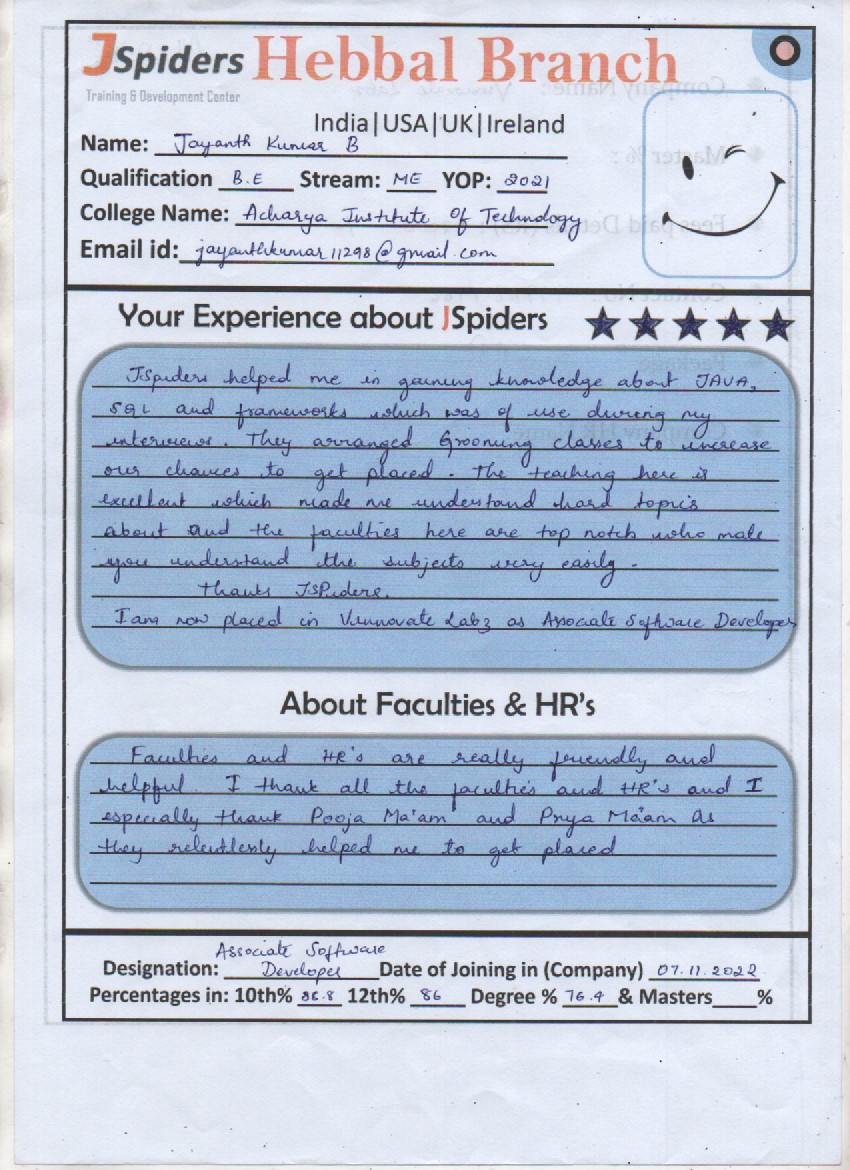 JSpiders Hebbal Branch
Training & Development Center
India|USA|UK|Ireland
Name: Jayanth Kumar B
Qualification B.E Stream: ME YOP: 2021
College Name: Acharya Institute of Technology
Email id: jayanthkumar11298@gmail.com
Your Experience about JSpiders
JSpiders helped me in gaining knowledge about JAVA,
SQL and frameworks which was of use during my
interviews. They arranged Grooming classes to increase
our chances to get placed. The teaching here is
excellent which made me understand hard topics
about and the faculties here are top notch who make
you understand the subjects very easily.
Thanks JSPiders.
I am now placed in Vunnovate Labz as Associate Software Developer
About Faculties & HR's
Faculties and HR's are really friendly and
helpful I thank all the faculties and HR's and I
especially thank Pooja Ma'am and Priya Ma'am as
they relentlessly helped me to get placed
Associate Software
Designation: Developer Date of Joining in (Company) 07.11.2022
Percentages in: 10th% 12th% 86 Degree % 76.4 & Masters____%